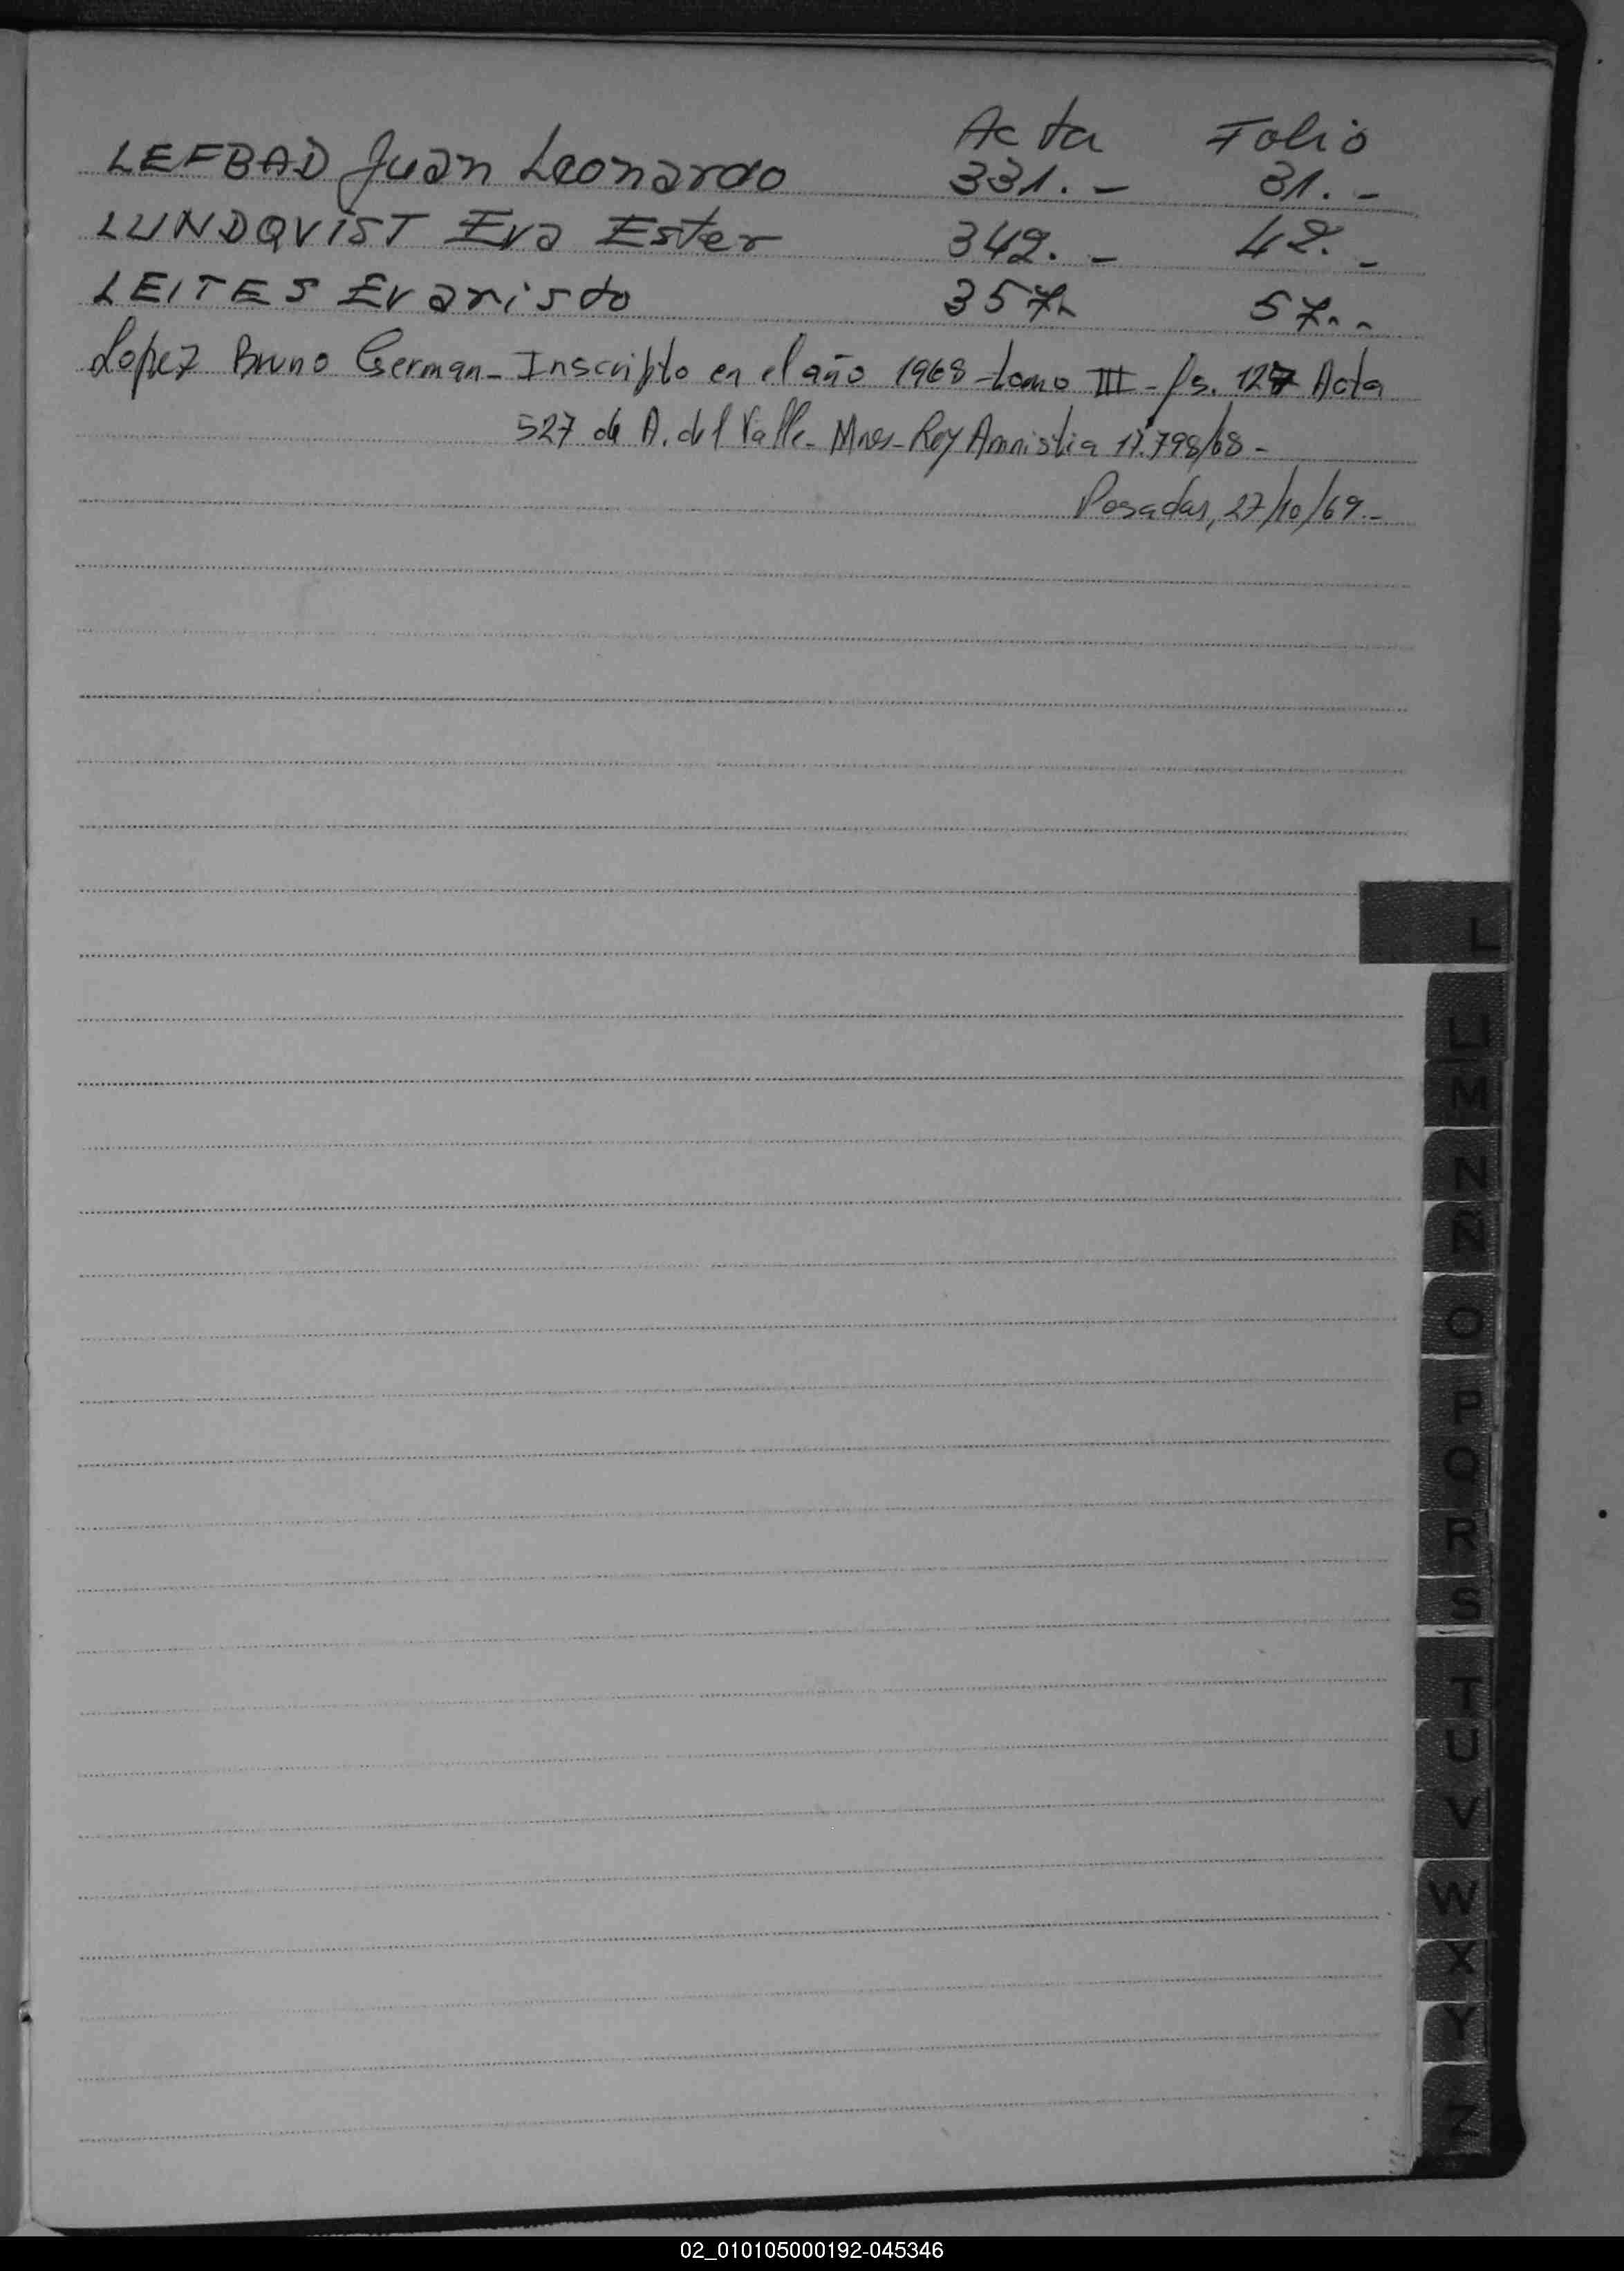 Acta Folio
LEFBAD Juan Leonardo 331.- 31.-
LUNDQVIST Eva Ester 342.- 42.-
LEITES Evaristo 357.- 57.-
Lopez Bruno German - Inscripto en el año 1968 - tomo III - fs. 127 Acta
527 de A. del Valle - Mnes - Ley Amnistia 17.798/68 -
Posadas, 27/10/69.-
L
LL
M
N
Ñ
O
P
Q
R
S
T
U
V
W
X
Y
Z
02_010105000192-045346